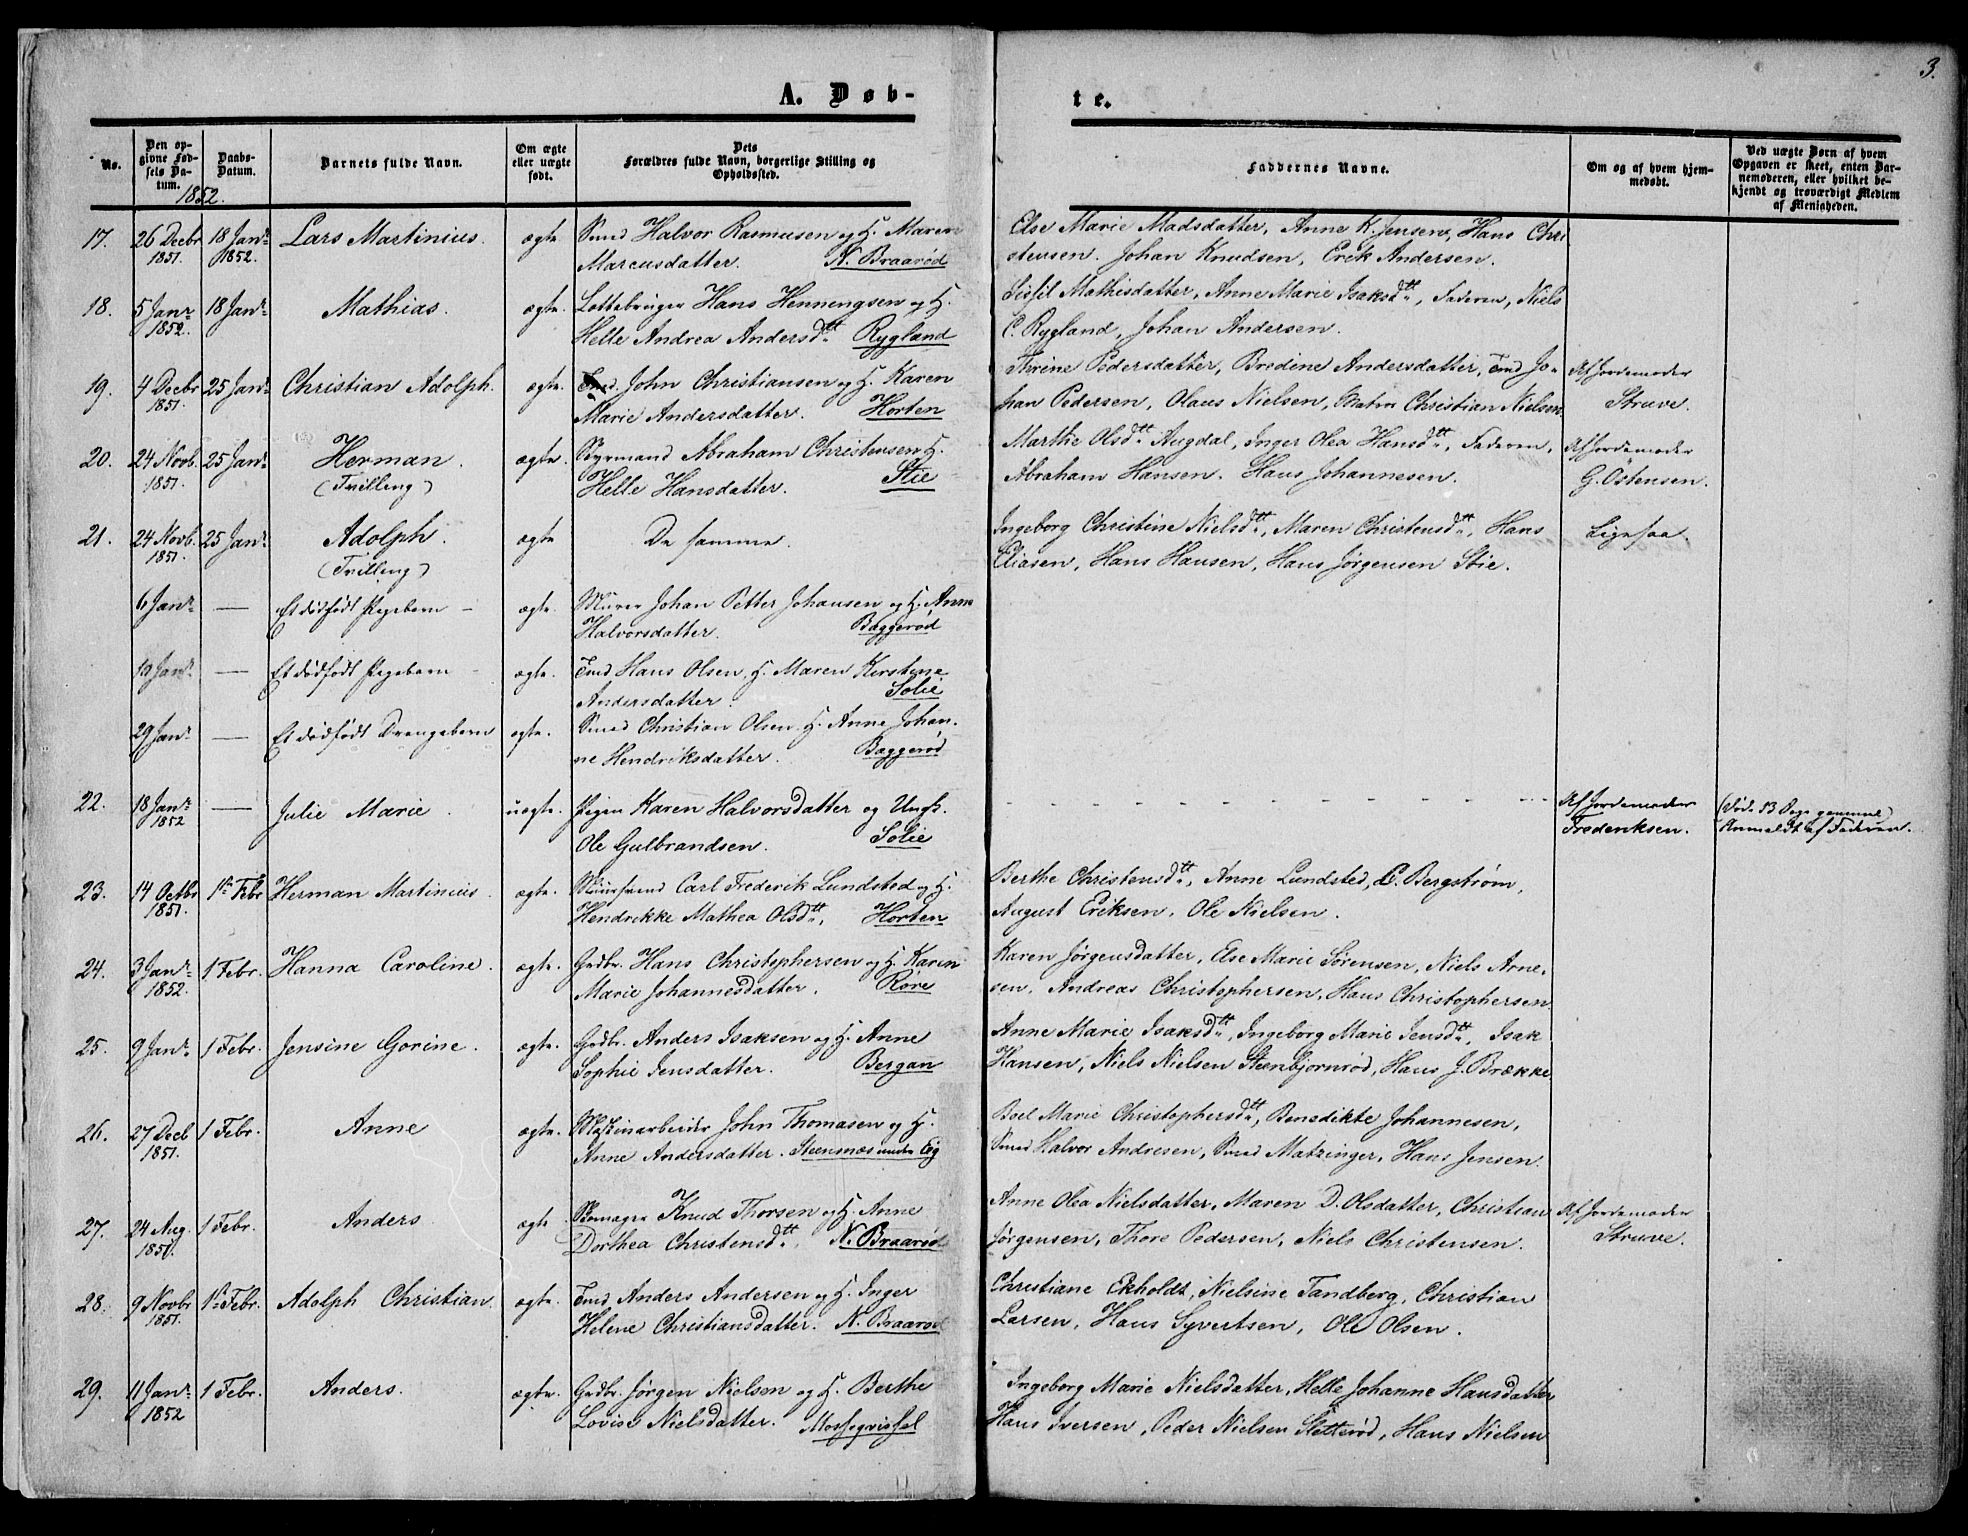 3.
A. Døb-
te.
No.
Den op-
givne Fød-
sels Da-
tum.
Daabs-
Datum.
Barnets fulde Navn.
Om ægte
eller uægte
født.
Dets
Forældres fulde Navn, borgerlige Stilling og
Opholdssted.
Faddernes Navne.
Om og af hvem hjem-
medøbt.
Ved uægte Børn af hvem
Opgaven er skeet, enten Bar-
nemoderen, eller hvilket be-
kjendt og troværdigt Medlem
af Menigheden.
1852.
17. 26 Decbr 18 Janr Lars Martinius. ægte Smed Halvor Rasmusen og H. Maren Else Marie Madsdatter, Anne K. Jensen, Hans Chri
1851. 1852. Marcusdatter. N. Braarød stensen. Johan Knudsen, Erik Andersen.
18. 5 Janr 18 Janr Mathias. ægte. Lottebruger Hans Henningsen og H. Sissil Mathisdatter, Anne Marie Isaksdtt, Faderen, Niels
1852. Helle Andrea Andersdtt Rygland C. Rygland, Johan Andersen.
19. 4 Decbr 25 Janr Christian Adolph. ægte. Tmd. John Christiansen og H. Karen Thrine Pedersdatter, Bredine Andersdatter, Tmd Jo- Af Jordemoder
1851. Marie Andersdatter. Horten han Pedersen, Olaus Nielsen, Matros Christian Nielsen. Struve.
20. 24 Novb. 25 Janr Herman. ægte. Styrmand Abraham Christensen H. Marthe Olsdtt Augdal, Inger Olea Hansdtt, Faderen, Af Jordemoder
1851. (Tvilling) Helle Hansdatter. Stie Abraham Hansen. Hans Johannesen. G. Østensen.
21. 24 Novb. 25 Janr Adolph. ægte De samme. Ingeborg Christine Nielsdtt, Maren Christensdtt, Hans Ligesaa.
1851. (Tvilling) Eliasen, Hans Hansen, Hans Jørgensen Stie.
6 Janr — Et dødfødt Pigebarn - ægte. Murer Johan Petter Johansen og H. Anne
Halvorsdatter. Baggerød
19 Janr — Et dødfødt Pigebarn - ægte. Tmd Hans Olsen, H. Maren Kirstine
Andersdatter. Solie
29 Janr — Et dødfødt Drengebarn ægte. Smed Christian Olsen H. Anne Johan-
ne Hendriksdatter. Baggerød
22. 18 Janr — Julie Marie. uægte. Pigen Karen Halvorsdatter og Ungk. Af Jordemoder (Død. 13 Dage gammel)
1852 Ole Gulbrandsen. Solie Frederiksen. Anmeldt af Faderen.
23. 14 Octbr 1ste Febr Herman Martinius. ægte. Carl Frederik Lundsted og H. Berthe Christensdtt, Anne Lundsted, C. Bergstrøm,
1851. Hendrikke Mathea Olsdtt, Horten August Eriksen, Ole Nielsen.
24. 3 Janr 1 Febr. Hanna Caroline. ægte. Grdbr. Hans Christophersen og H. Karen Karen Jørgensdatter, Else Marie Sørensen, Niels Arne-
1852. Marie Johannesdatter. Røre sen, Andreas Christophersen, Hans Christophersen
25. 9 Janr 1 Febr. Jensine Gorine. ægte. Grdbr. Anders Isaksen og H. Anne Anne Marie Isaksdtt, Ingeborg Marie Jensdtt, Isak
Sophie Jensdatter. Bergan Hansen, Niels Nielsen Steenbjørnrød, Hans J. Brække.
26. 27 Decb 1 Febr. Anne ægte. Maskinarbeider John Thomasen og H. Boel Marie Christophersdtt, Benedikte Johannesen,
1851. Anne Andersdatter. Steensnæs under Eig Smed Halvor Andresen, Smed Matzinger, Hans Jensen.
27. 24 Aug. 1 Febr. Anders ægte Skomager Knud Thorsen og H. Anne Anne Olea Nielsdatter, Maren D. Olsdatter, Christian Af Jordemoder
1851. Dorthea Christensdtt, N. Braarød Jørgensen, Thore Pedersen, Niels Christensen. Struve.
28. 9 Novbr 1 Febr. Adolph Christian. ægte. Tmd Anders Andersen og H. Inger Christiane Ekholdt, Nielsine Tandberg, Christian
1851. Helene Christiansdatter. N. Braarød Larsen, Hans Syvertsen, Ole Olsen.
29. 11 Janr 1 Febr. Anders. ægte. Grdbr. Jørgen Nielsen og H. Berthe Ingeborg Marie Nielsdatter, Helle Johanne Hansdatter
1852 Lovise Nielsdatter. Hans Iversen, Peder Nielsen Sletterød, Hans Nielsen